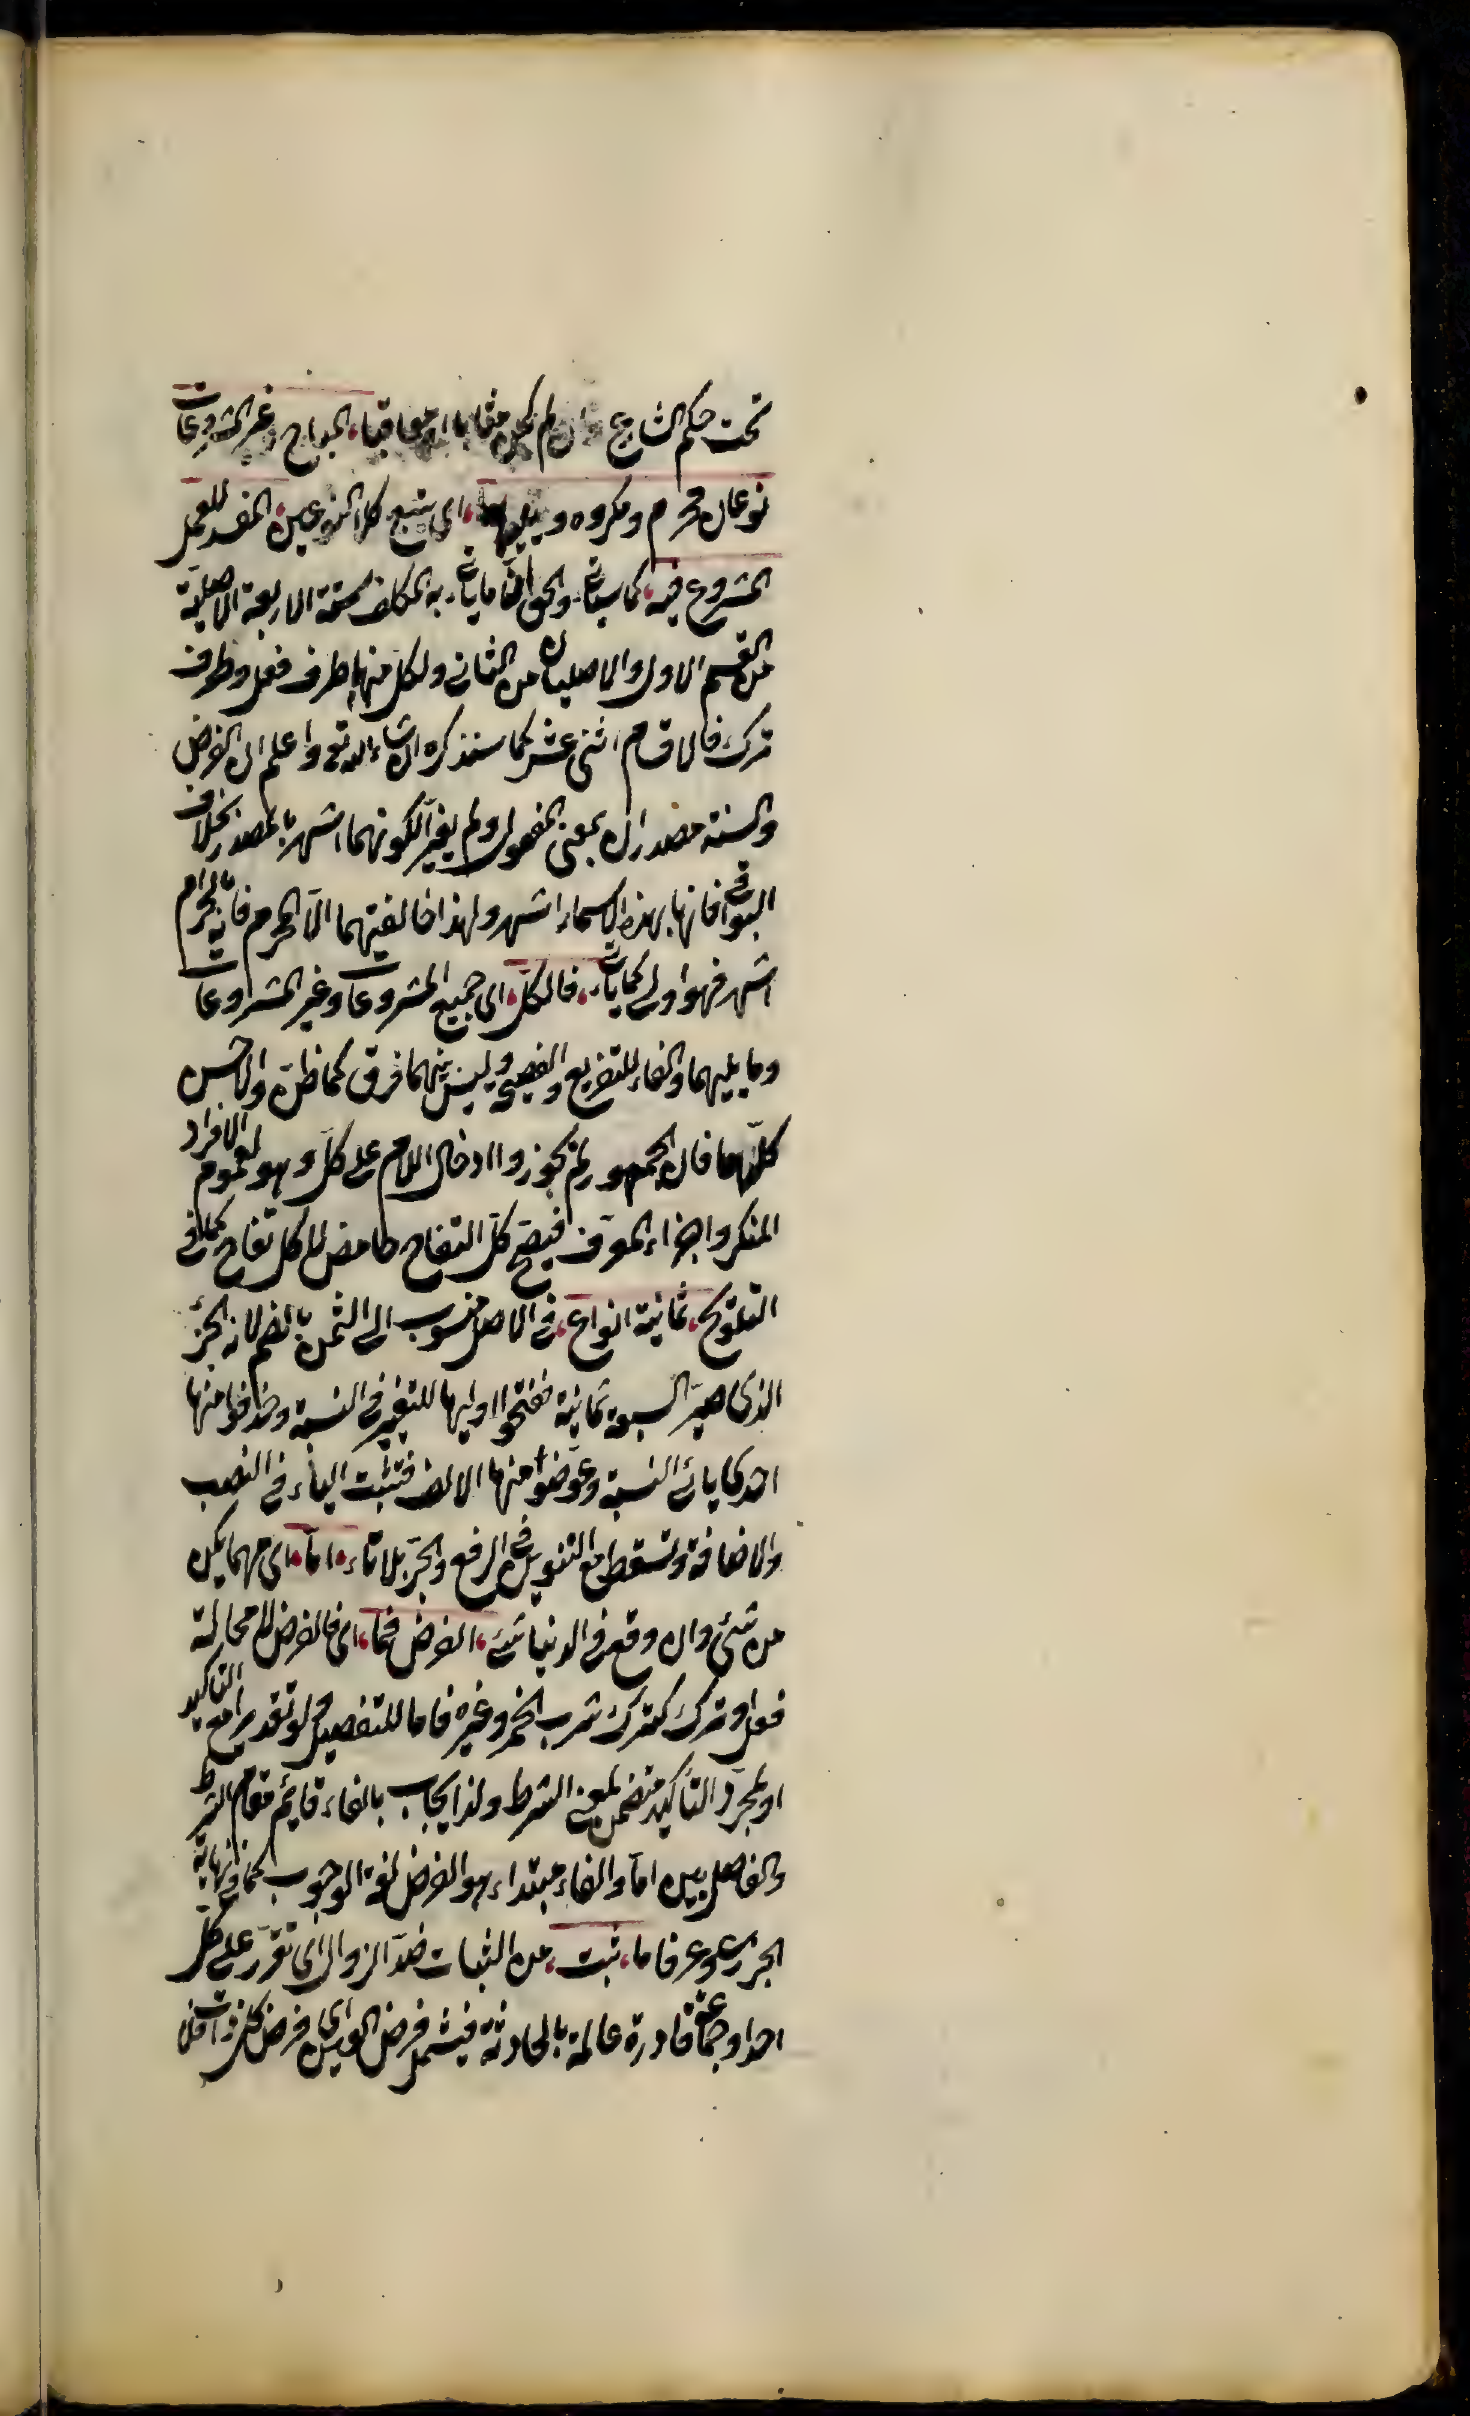 تحت حكم الشارع وان لم يكن مثابا او معاقبا المباح وغير المشروعات
نوعان محرم ومكروه ويليهما اى يتبع كلا النوعين المفسد للعمل
المشروع فيه كما سيأتى والحق ان ما يأتى به المكلف ستة الاربعة الاصلية
من القسم الاول والاصليان من الثانى ولكل منها طرف فعل وطرف
ترك فالاقسام اثنى عشر كما سنذكره ان شاء الله تع واعلم ان الفرض
والسنة مصدران بمعنى المفعول ولم يغير لكونهما اشهر بالمصدر بخلاف
البواقى فانها بهذه الاسماء اشهر ولهذا خالفتهما الا المحرم فانه بالحرام
اشهر فهو اولى كما يأتى فالكل اى جميع المشروعات وغير المشروعات
وما يليهما والفاء للتفريع والفصيحة وليس بينهما فرق كما ظن والاحسن
كلهما فان الجمهور لم يجوزوا ادخال اللام على كل وهو لعموم الافراد
المنكر واجزاء المعرف فيصح كل التفاح حامض لا كل تفاح كما فى
التلويح ثمانية انواع فى الاصل منسوب الى الثمن بالضم لانه الجزء
الذى صير السبعة ثمانية ففتحوا اولها للتغيير فى النسبة وحذفوا منها
احدى يائى النسبة وعوضوا منها الالف فتثبت الياء فى النصب
والاضافة وتسقط مع التنوين فى الرفع والجر بلا تاء اما اى مهما يكن
من شئ وان وقع فى الدنيا شئ الفرض فما اى فالفرض لا محالة
فعل او ترك كترك شرب الخمر وغيره فاما للتفصيل ولو تقديرا مع التاكيد
او لمجرد التأكيد متضمن لمعنى الشرط ولذا يجاب بالفاء قائم مقام الشرط
والفاصل بين اما والفاء مبتداء هو الفرض لغة الوجوب كما فى نهاية
الجزرى وعرفا ما ثبت من الثبات ضد الزوال اى تقرر على كل
احد او جماعة قادرة عالمة بالحادثة فيشمل فرض العين اى فرض كل ذات